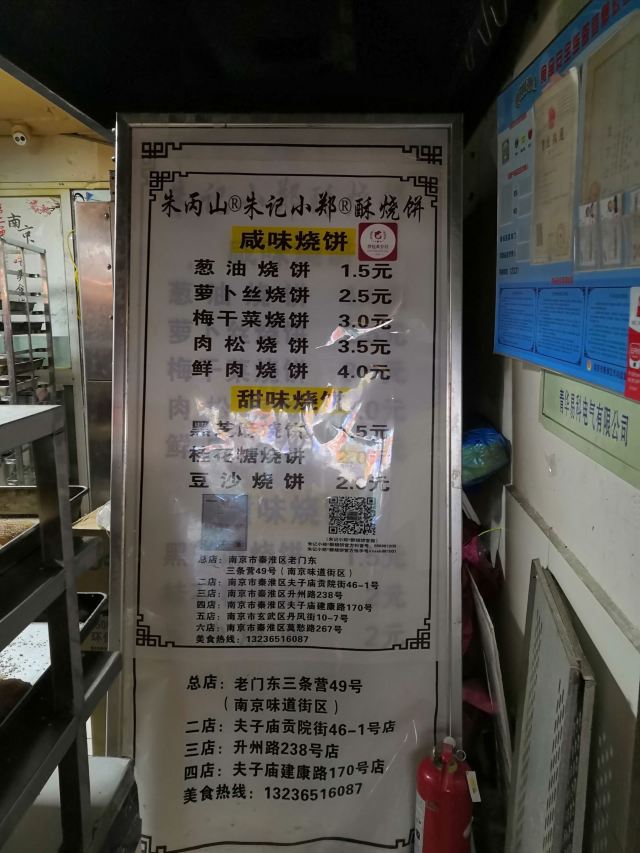 朱丙山®朱记小郑®酥烧饼
咸味烧饼
葱油烧饼 1.5元
萝卜丝烧饼 2.5元
梅干菜烧饼 3.0元
肉松烧饼 3.5元
鲜肉烧饼 4.0元
甜味烧饼
烧饼 .5元
桂花糖烧饼 2.0元
豆沙烧饼 2.0元
总店：南京市秦淮区老门东
三条营49号（南京味道街区）
二店：南京市秦淮区夫子庙贡院街46-1号
三店：南京市秦淮区升州路238号
四店：南京市秦淮区夫子庙建康路170号
五店：南京市玄武区丹凤街10-7号
六店：南京市秦淮区莫愁路267号
美食热线：13236516087
总店：老门东三条营49号
（南京味道街区）
二店：夫子庙贡院街46-1号店
三店：升州路238号店
四店：夫子庙建康路170号店
美食热线：13236516087
南京
营业执照
电气有限公司